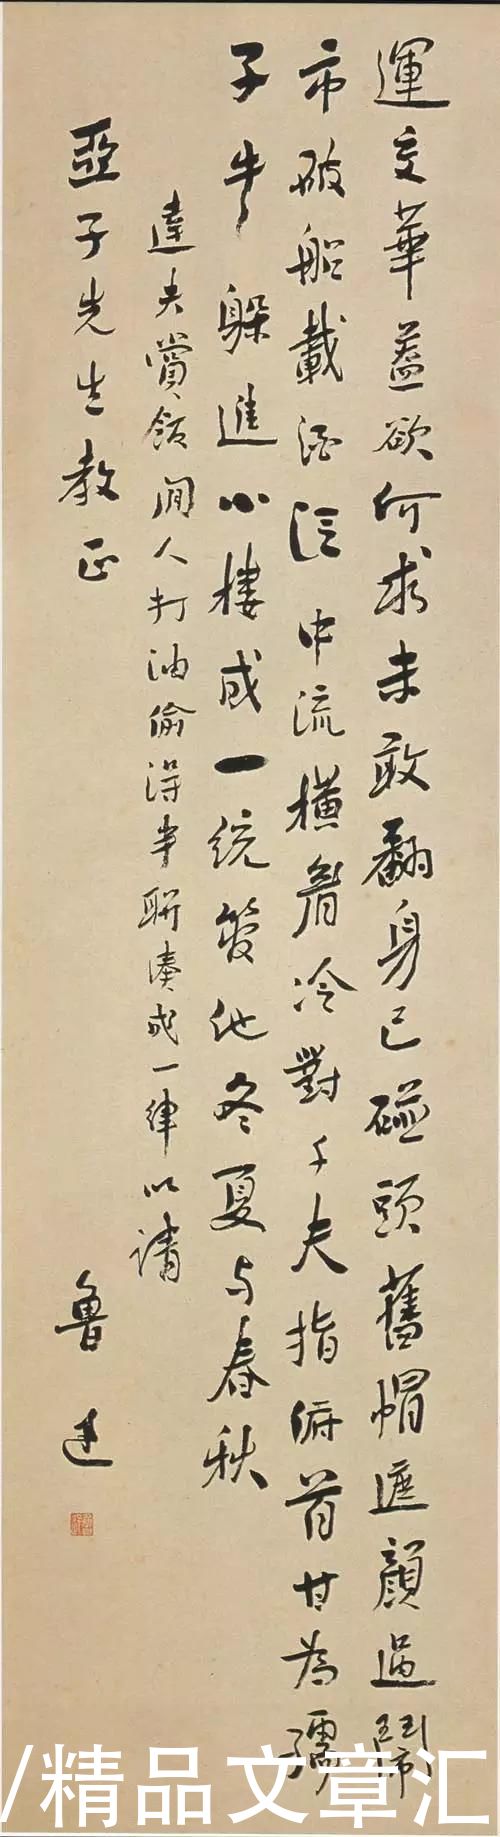 運交華蓋欲何求未敢翻身已碰頭舊帽遮顏過鬧
市破船載酒泛中流橫眉冷對千夫指俯首甘為孺
子牛躲進小樓成一統管他冬夏与春秋
達夫賞飯閒人打油偷得半聯湊成一律以請
亞子先生教正
魯迅
/精品文章汇